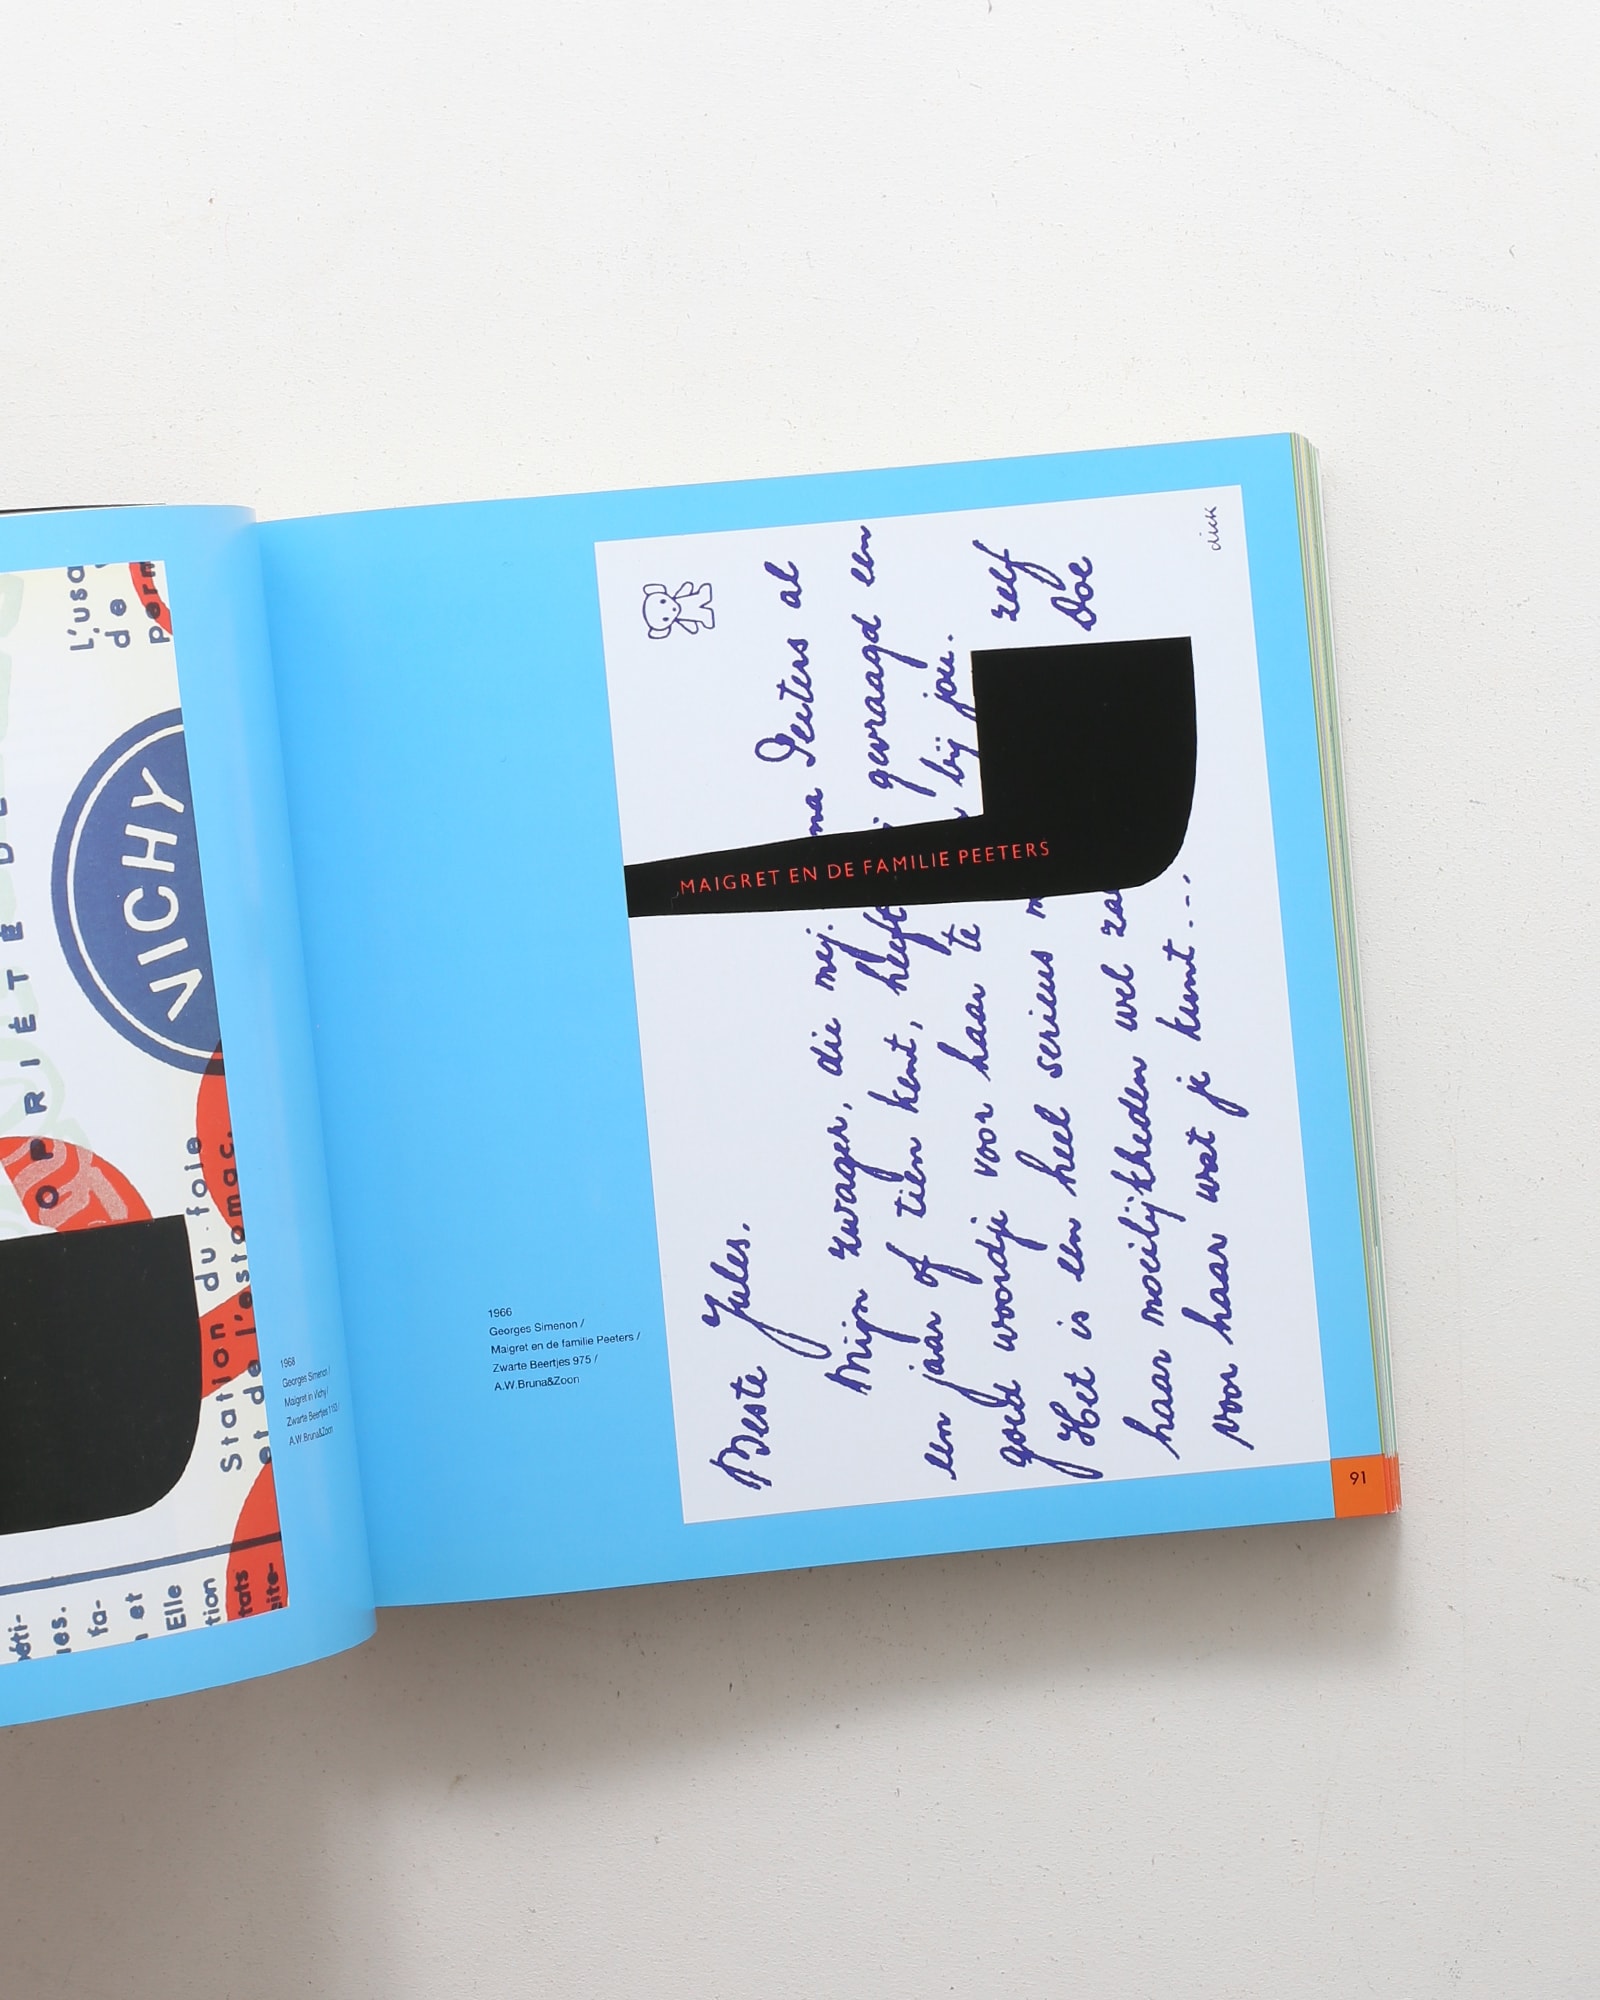 L'usa
de
perm
VICHY
OPRIÉTÉ DE
Station du foie
et de l'estomac.
ues.
fa-
et
Elle
tion
tats
1968
Georges Simenon /
Maigret in Vichy /
Zwarte Beertjes
A.W.Bruna&Zoon
1966
Georges Simenon /
Maigret en de familie Peeters /
Zwarte Beertjes 975 /
A.W.Bruna&Zoon
Beste Jules.
Mijn zwager, die mej. na Peeters al
een jaar of tien kent, heeft gevraagd een
goed woordje voor haar te bij jou.
Het is een heel serieus m zelf
haar moeilijkheden wel za Doe
voor haar wat je kunt...
MAIGRET EN DE FAMILIE PEETERS
dick
91